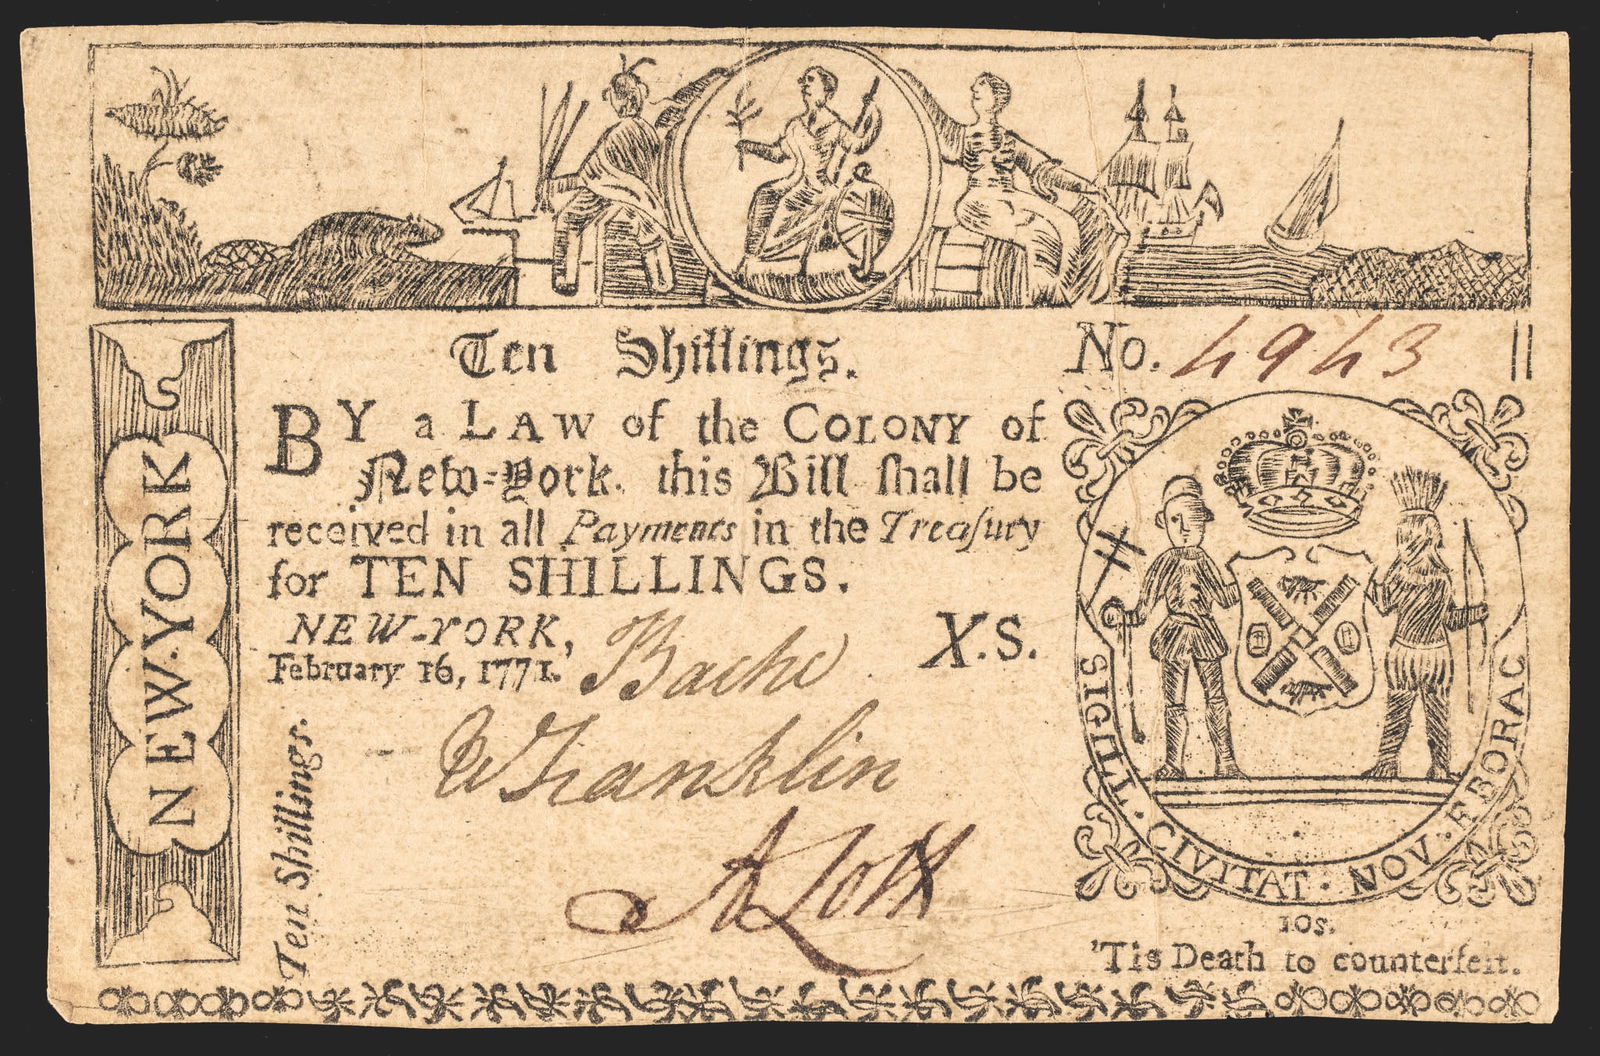 Ten Shillings.
No. 4943
BY a LAW of the COLONY of
New-York. this Bill ſhall be
received in all Payments in the Treaſury
for TEN SHILLINGS.
NEW-YORK,
February 16, 1771.
X.S.
Bache
W Franklin
A Lott
NEW-YORK
Ten Shillings.
SIGILL. CIVITAT. NOV. EBORAC
10s.
'Tis Death to counterfeit.